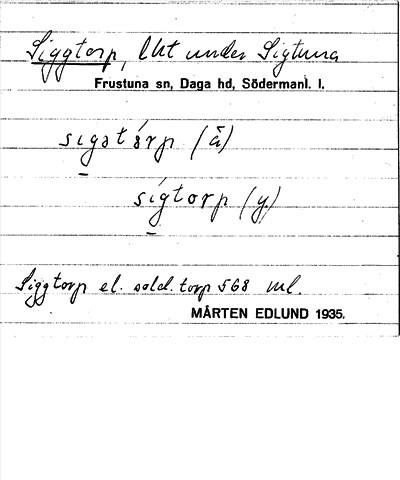 Siggtorp, lht under Sigtuna
Frustuna sn, Daga hd, Södermanl. l.
sigatårp (å)
sígtorp (y)
Siggtorp el. sold. torp 568 ml.
MÅRTEN EDLUND 1935.